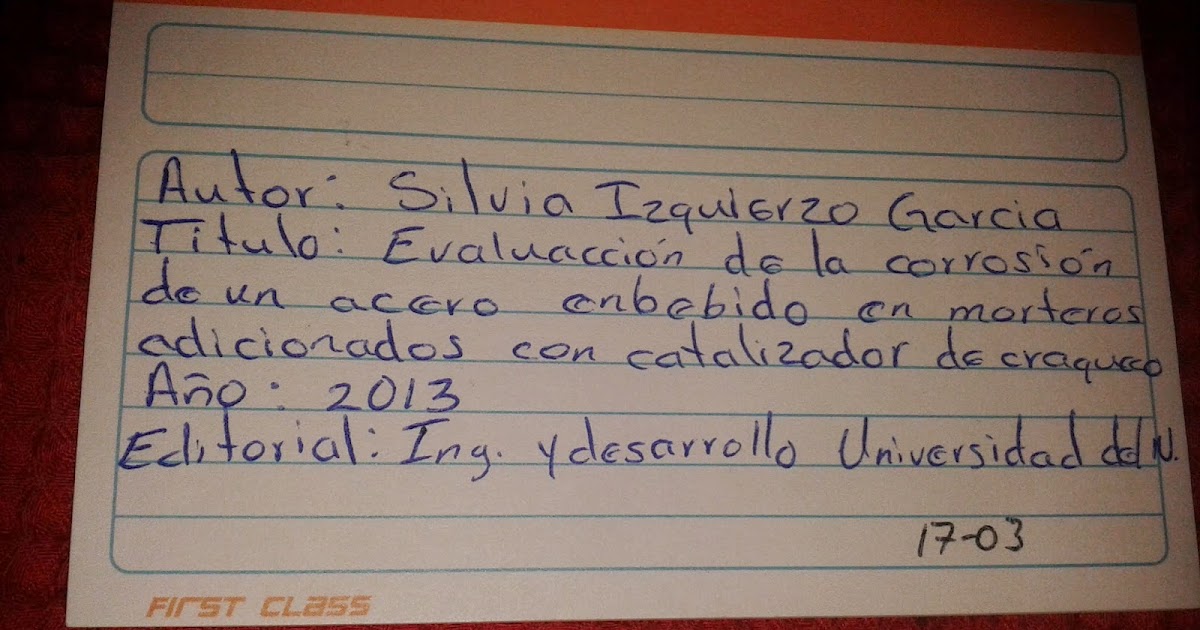 Autor: Silvia Izquierzo Garcia
Titulo: Evaluacción de la corrosión
de un acero enbebido en morteros
adicionados con catalizador de craqueo
Año: 2013
Editorial: Ing. y desarrollo Universidad del N.
17-03
FIRST CLASS